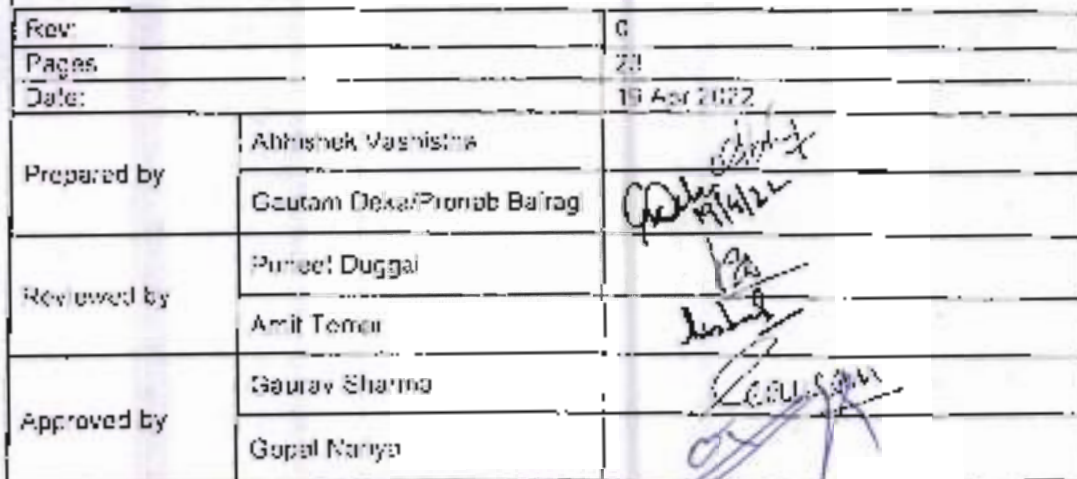 Rev: 0
Pages 23
Date: 19 Apr 2022
Prepared by
Abhishek Vashistha
Gautam Deka/Pronab Bairagi
19/4/22
Reviewed by
Puneet Duggal
Amit Tomar
Approved by
Gaurav Sharma
Gaurav
Gopal Nariya